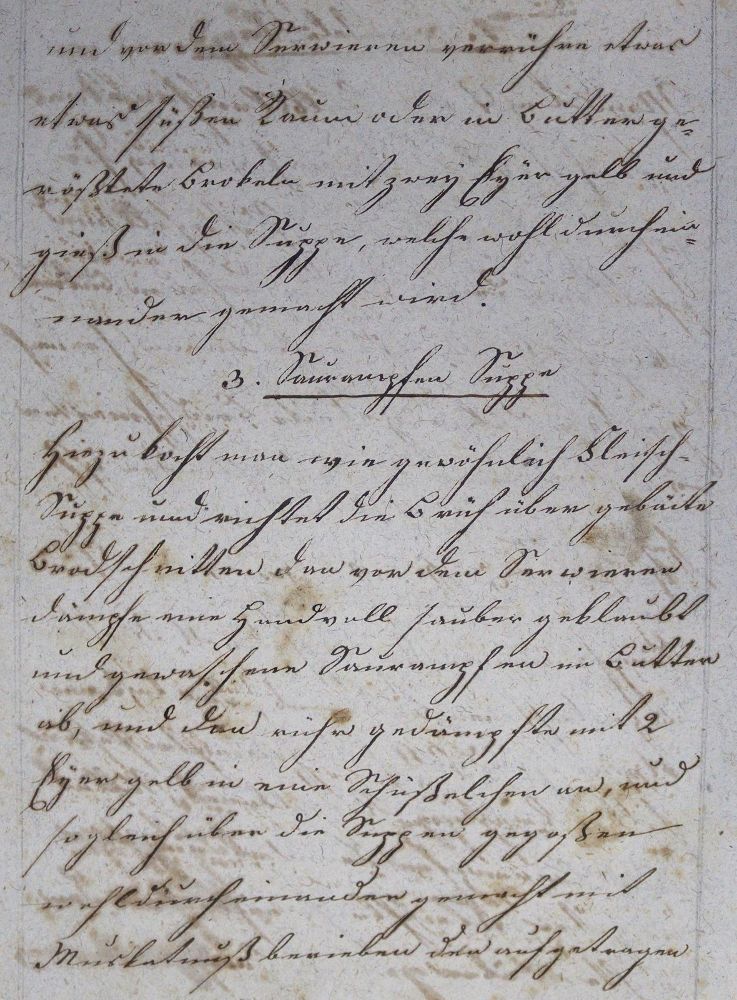 und vor dem Serwieren verrühre etwas
etwas süßen Raum oder in Butter ge=
rößtete Brokeln mit zwey Eyër gelb und
gieß in die Suppe, welche wohl durchein=
nander gemacht wird.
3. Saurampfen Suppe
Hiezu kocht man wie gewöhnlich Fleisch-
Suppe und richtet die Brüh über gebäite
Brodschnitten dan vor dem Serwieren
dämpfe eine Handvoll sauber geklaubt
und gewaschene Saurampfen in Butter
ab, und dan rühr gedämpfte mit 2
Eyer gelb in eine Schüßelchen an, und
sogleich über die Suppen gegoßen
wohl durcheinander gemacht mit
Muskatnuß berieben den aufgetragen